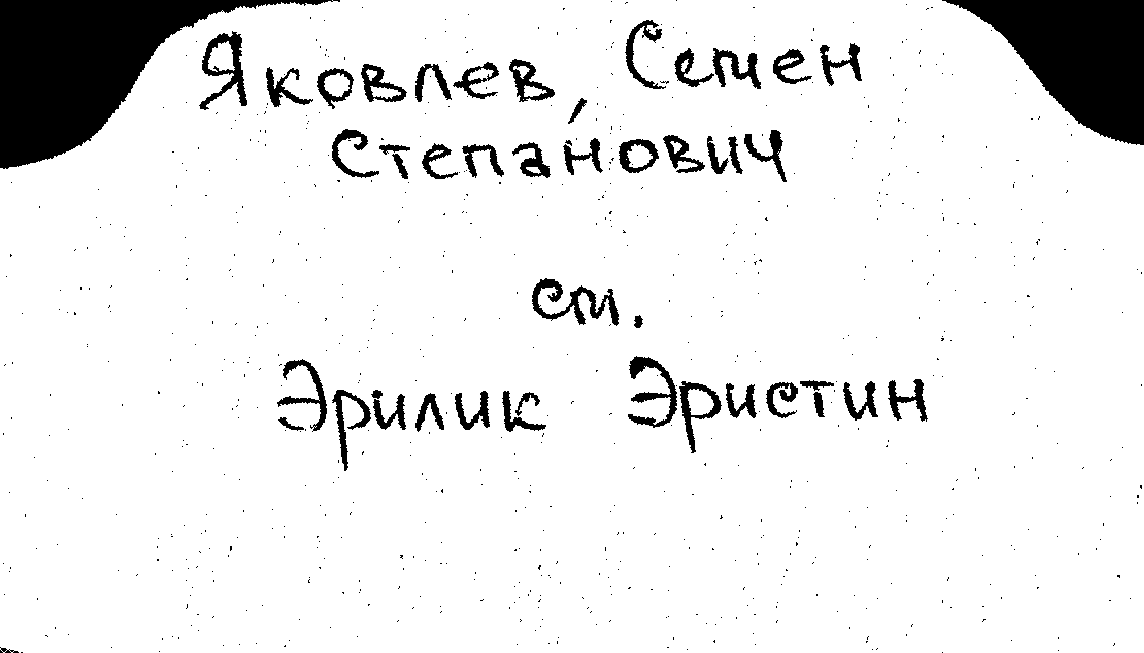 Яковлев, Семен
Степанович
см.
Эрилик Эристин